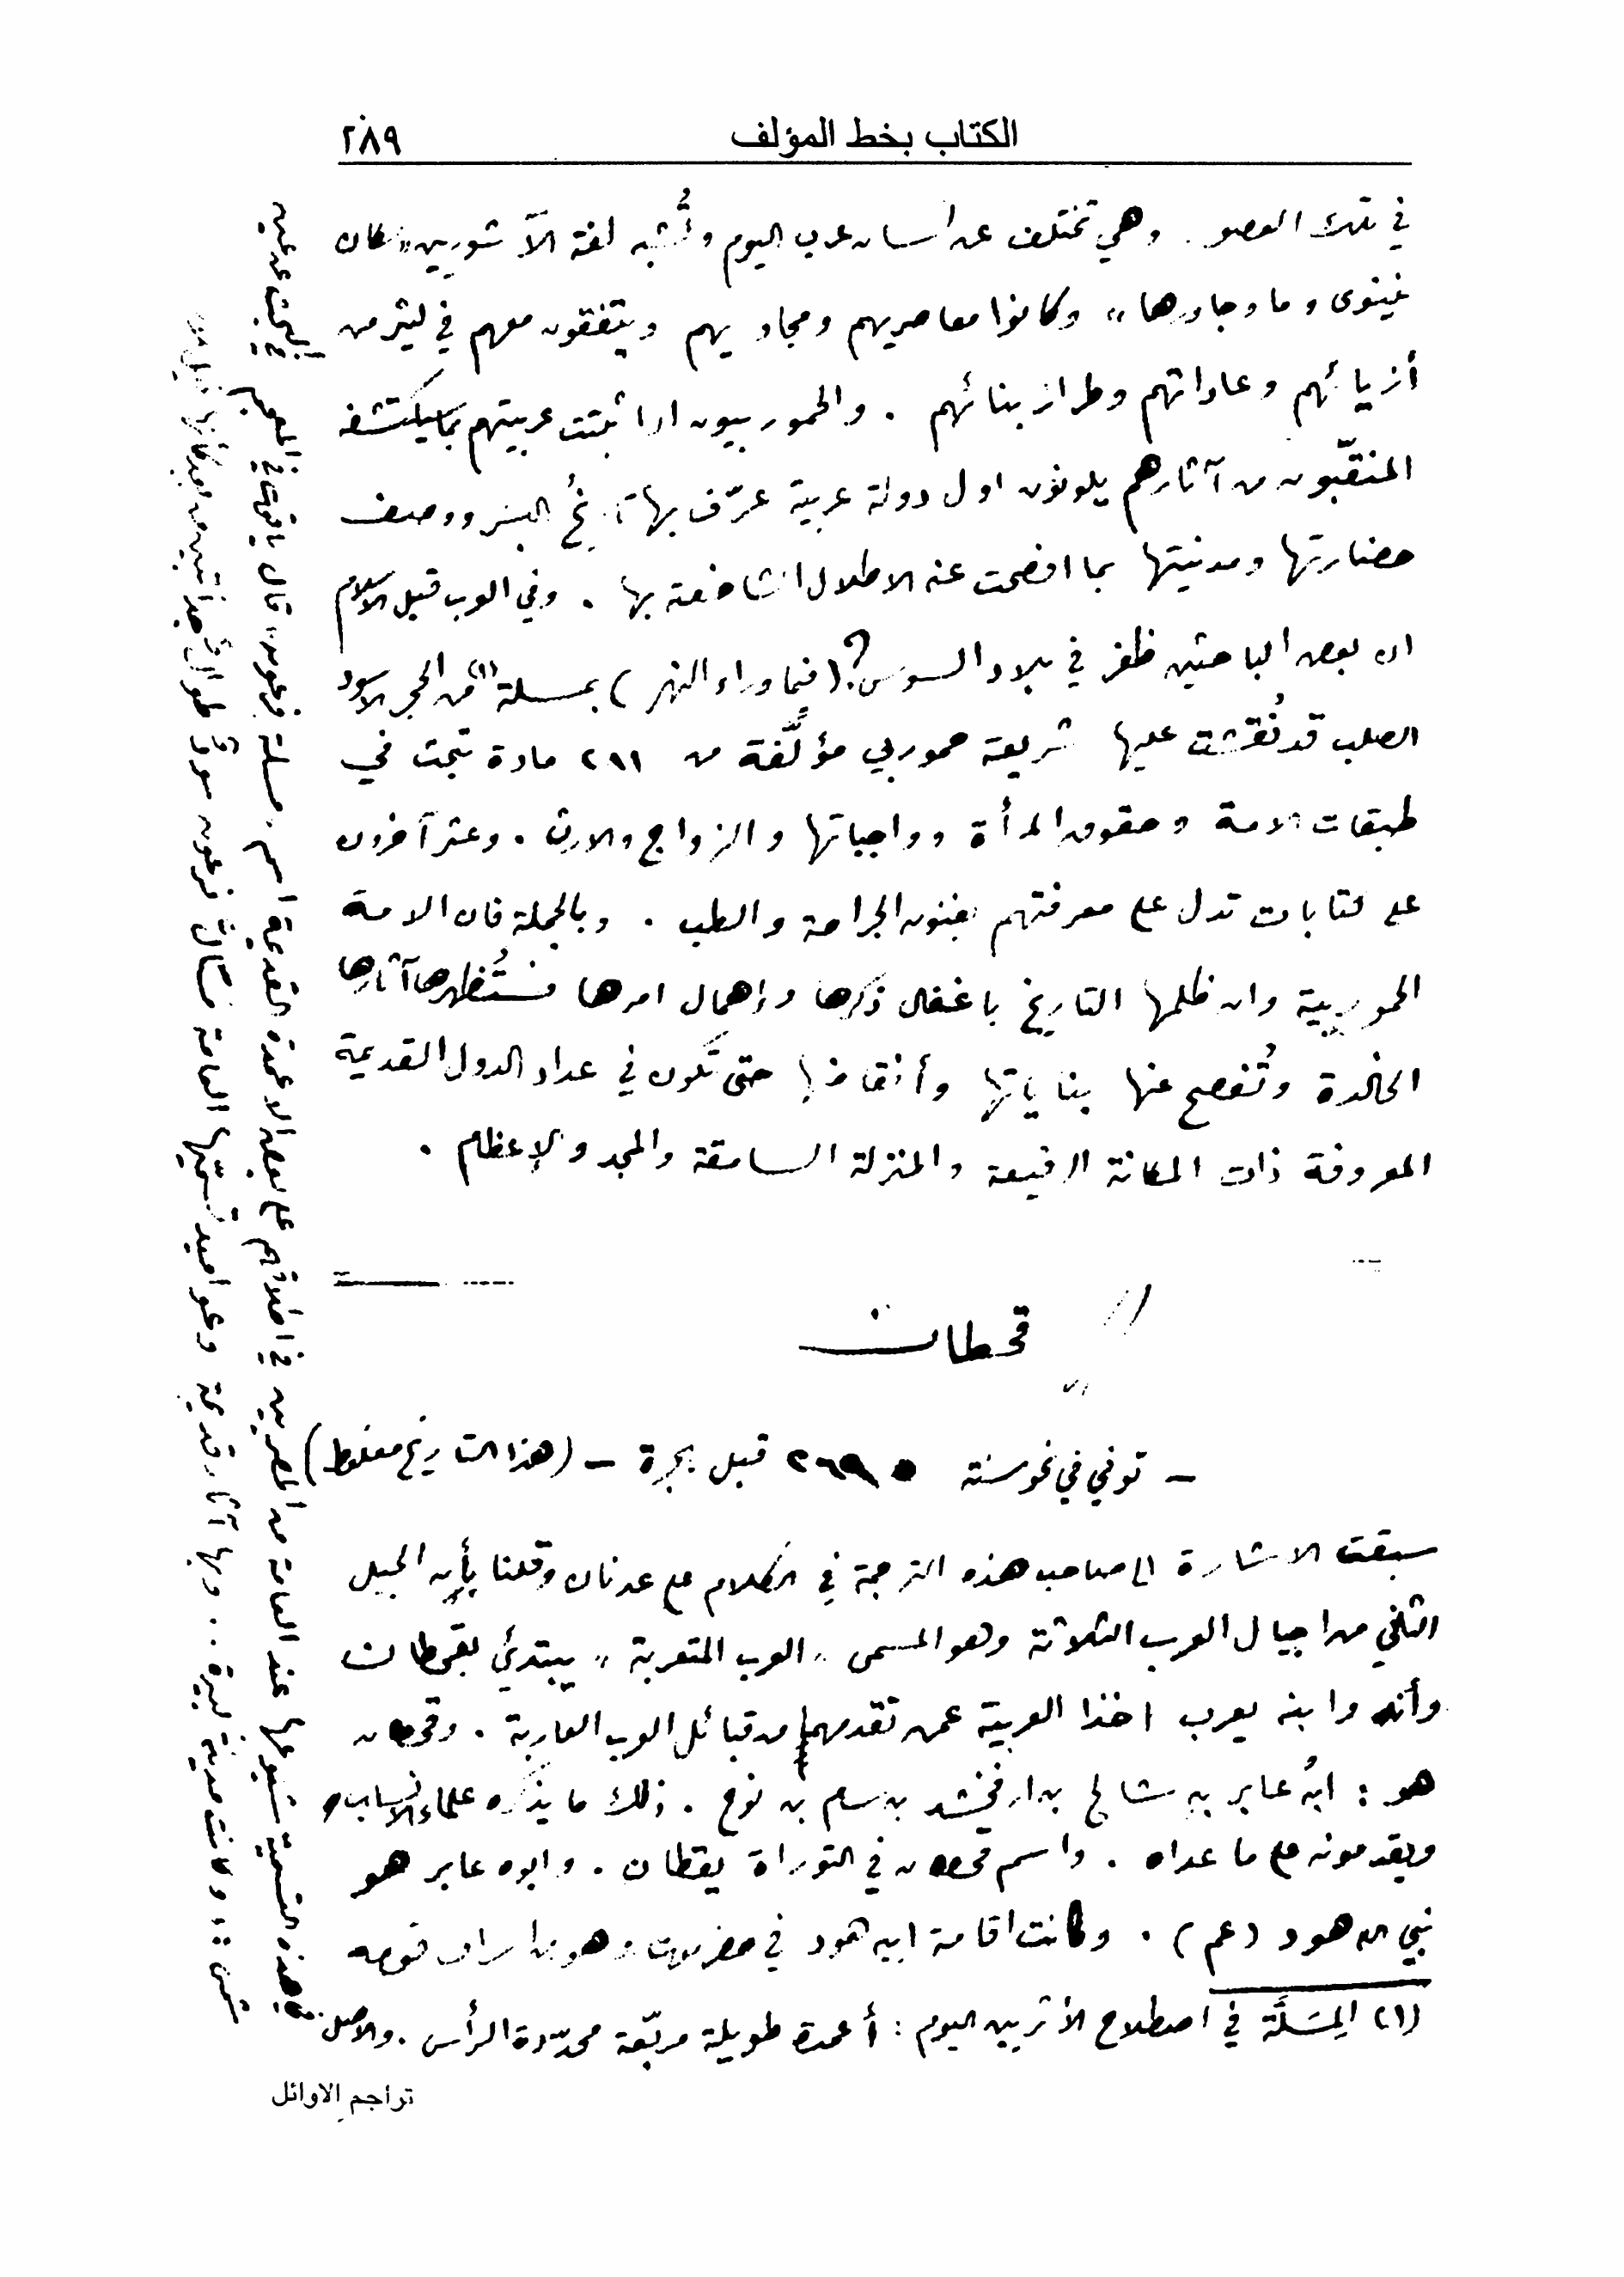 الكتاب بخط المؤلف ٢٨٩
في تلك العصور . وهي تختلف عن لسان عرب اليوم وتُشبه لغة الآشوريين «سكان
نينوى وما وجاورها» وكانوا معاصريهم ومجاوريهم ويتفقون معهم في كثير من
أزيائهم وعاداتهم وطراز بنائهم . والحموربيون اذا ثبتت عربيتهم بما سيكتشفه
المنقّبون من آثارهم يكونون اول دولة عربية عرّف بها تاريخُ البشر ووصف
حضارتها ومدنيتها بما افصحت عنه الاطلال الشاخصة بها . وفي العرب قبل الاسلام
ان بعض الباحثين ظفر في بلاد السوس؟ (فيما وراء النهر) بمسلة (١) من الحجر الاسود
الصلب قد نُقشت عليها شريعة حموربي مؤلَّفة من ٢٨١ مادة تبحث في
طبقات الامة وحقوق المرأة وواجباتها والزواج والارث . وعثر آخرون
على كتابات تدل على معرفتهم بفنون الجراحة والطب . وبالجملة فان الامة
الحموربية وان ظلمها التاريخ باغفال ذكرها وإهمال امرها فستُظهرها آثارها
الخالدة وتُفصح عنها بناياتها وأنقاضها حتى تكون في عداد الدول القديمة
المعروفة ذات المكانة الرفيعة والمنزلة السامقة والمجد والإعظام .
قحطان
– توفي في نحو سنة ٢٦٩٥ قبل هجرة – (هذا التاريخ مغلوط)
سبقت الاشارة الى صاحب هذه الترجمة في الكلام على عدنان وقلنا بأن الجيل
الثاني من اجيال العرب الثلاثة وهو المسمى «العرب المتعربة» يبتدئ بقحطان
وأنه وابنه يعرب اخذا العربية عمن تقدمهما من قبائل العرب العاربة . وقحطان
هو : ابنُ عابر بن شالخ بن ارفخشد بن سام بن نوح . ذلك ما يذكره علماء الانساب
ويقدمونه على ما عداه . واسم قحطان في التوراة يقطان . وابوه عابر هو
نبي الله هود (عم) . وكانت اقامة ابيه هود في حضرموت وهو من اشراف قومه
(١) المِسَلَّة في اصطلاح الأثريين اليوم : أعمدة طويلة مربّعة محدّدة الرأس . والاصل
في هذه التسمية شيوعها عند العامة من المصريين في اطلاقهم على بعض الاعمدة القديمة اسم «مسلة فرعون» قال ياقوت في المعجم في البحث عن عين
شمس : «وكانت مدينة كبيرة .. وبها آثار قديمة وعواميد تسمّيها العامة مسالّ فرعون سود طوال جداً تبين من بعد كأنها نخيل بلا
تراجم الاوائل